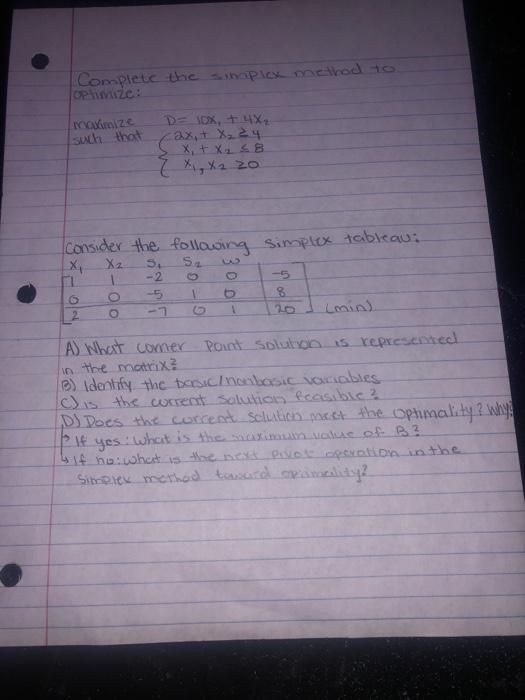 Complete the simplex method to
optimize:
maximize D = 10x₁ + 4x₂
such that { 2x₁ + x₂ ≥ 4
x₁ + x₂ ≤ 8
x₁, x₂ ≥ 0
Consider the following simplex tableau:
x₁ x₂ s₁ s₂ w
1 1 -2 0 0 | -5
0 0 -5 1 0 | 8
2 0 -7 0 1 | 20 (min)
A) What corner point solution is represented
in the matrix?
B) Identify the basic/nonbasic variables
C) is the current solution feasible?
D) Does the current solution meet the optimality? Why?
↳ If yes: what is the maximum value of B?
↳ If no: what is the next pivot operation in the
simplex method toward optimality?